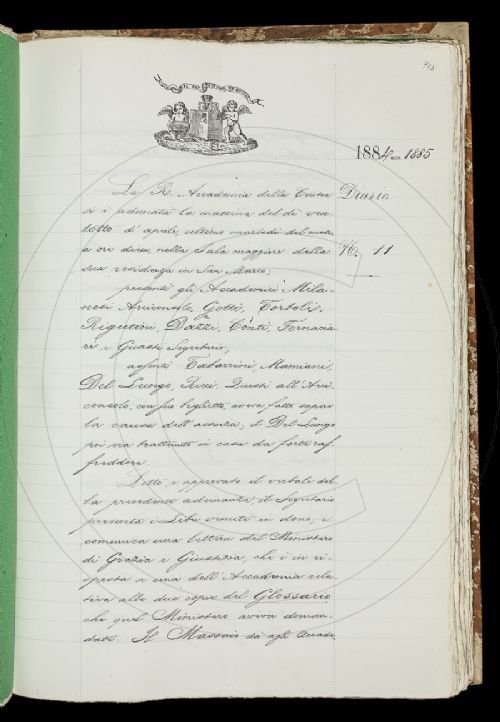 IL PIÙ BEL FIOR NE COGLIE
1884-1885
La R. Accademia della Crusca
Diario
si è adunata la mattina del dì ven
totto d'aprile, ultimo martedì del mese,
a ore dieci, nella Sala maggiore della
N. 11
sua residenza in San Marco;
presenti gli Accademici Mila
nesi Arciconsolo, Gotti, Tortoli,
Rigutini, Dazzi, Conti, Fornacia
ri e Guasti Segretario;
assenti Tabarrini, Mamiani,
Del Lungo, Ricci. Questi all'Arci
consolo, con suo biglietto, aveva fatto saper
la causa dell'assenza; il Del Lungo
poi era trattenuto in casa da forte raf
freddore.
Letto, e approvato il verbale del
la precedente adunanza, il Segretario
presenta i Libri venuti in dono, e
comunica una lettera del Ministero
di Grazia e Giustizia, che è in ri
sposta a una dell'Accademia rela
tiva alle due copie del Glossario
che quel Ministero aveva doman
date. Il Massaio dà agli Accade